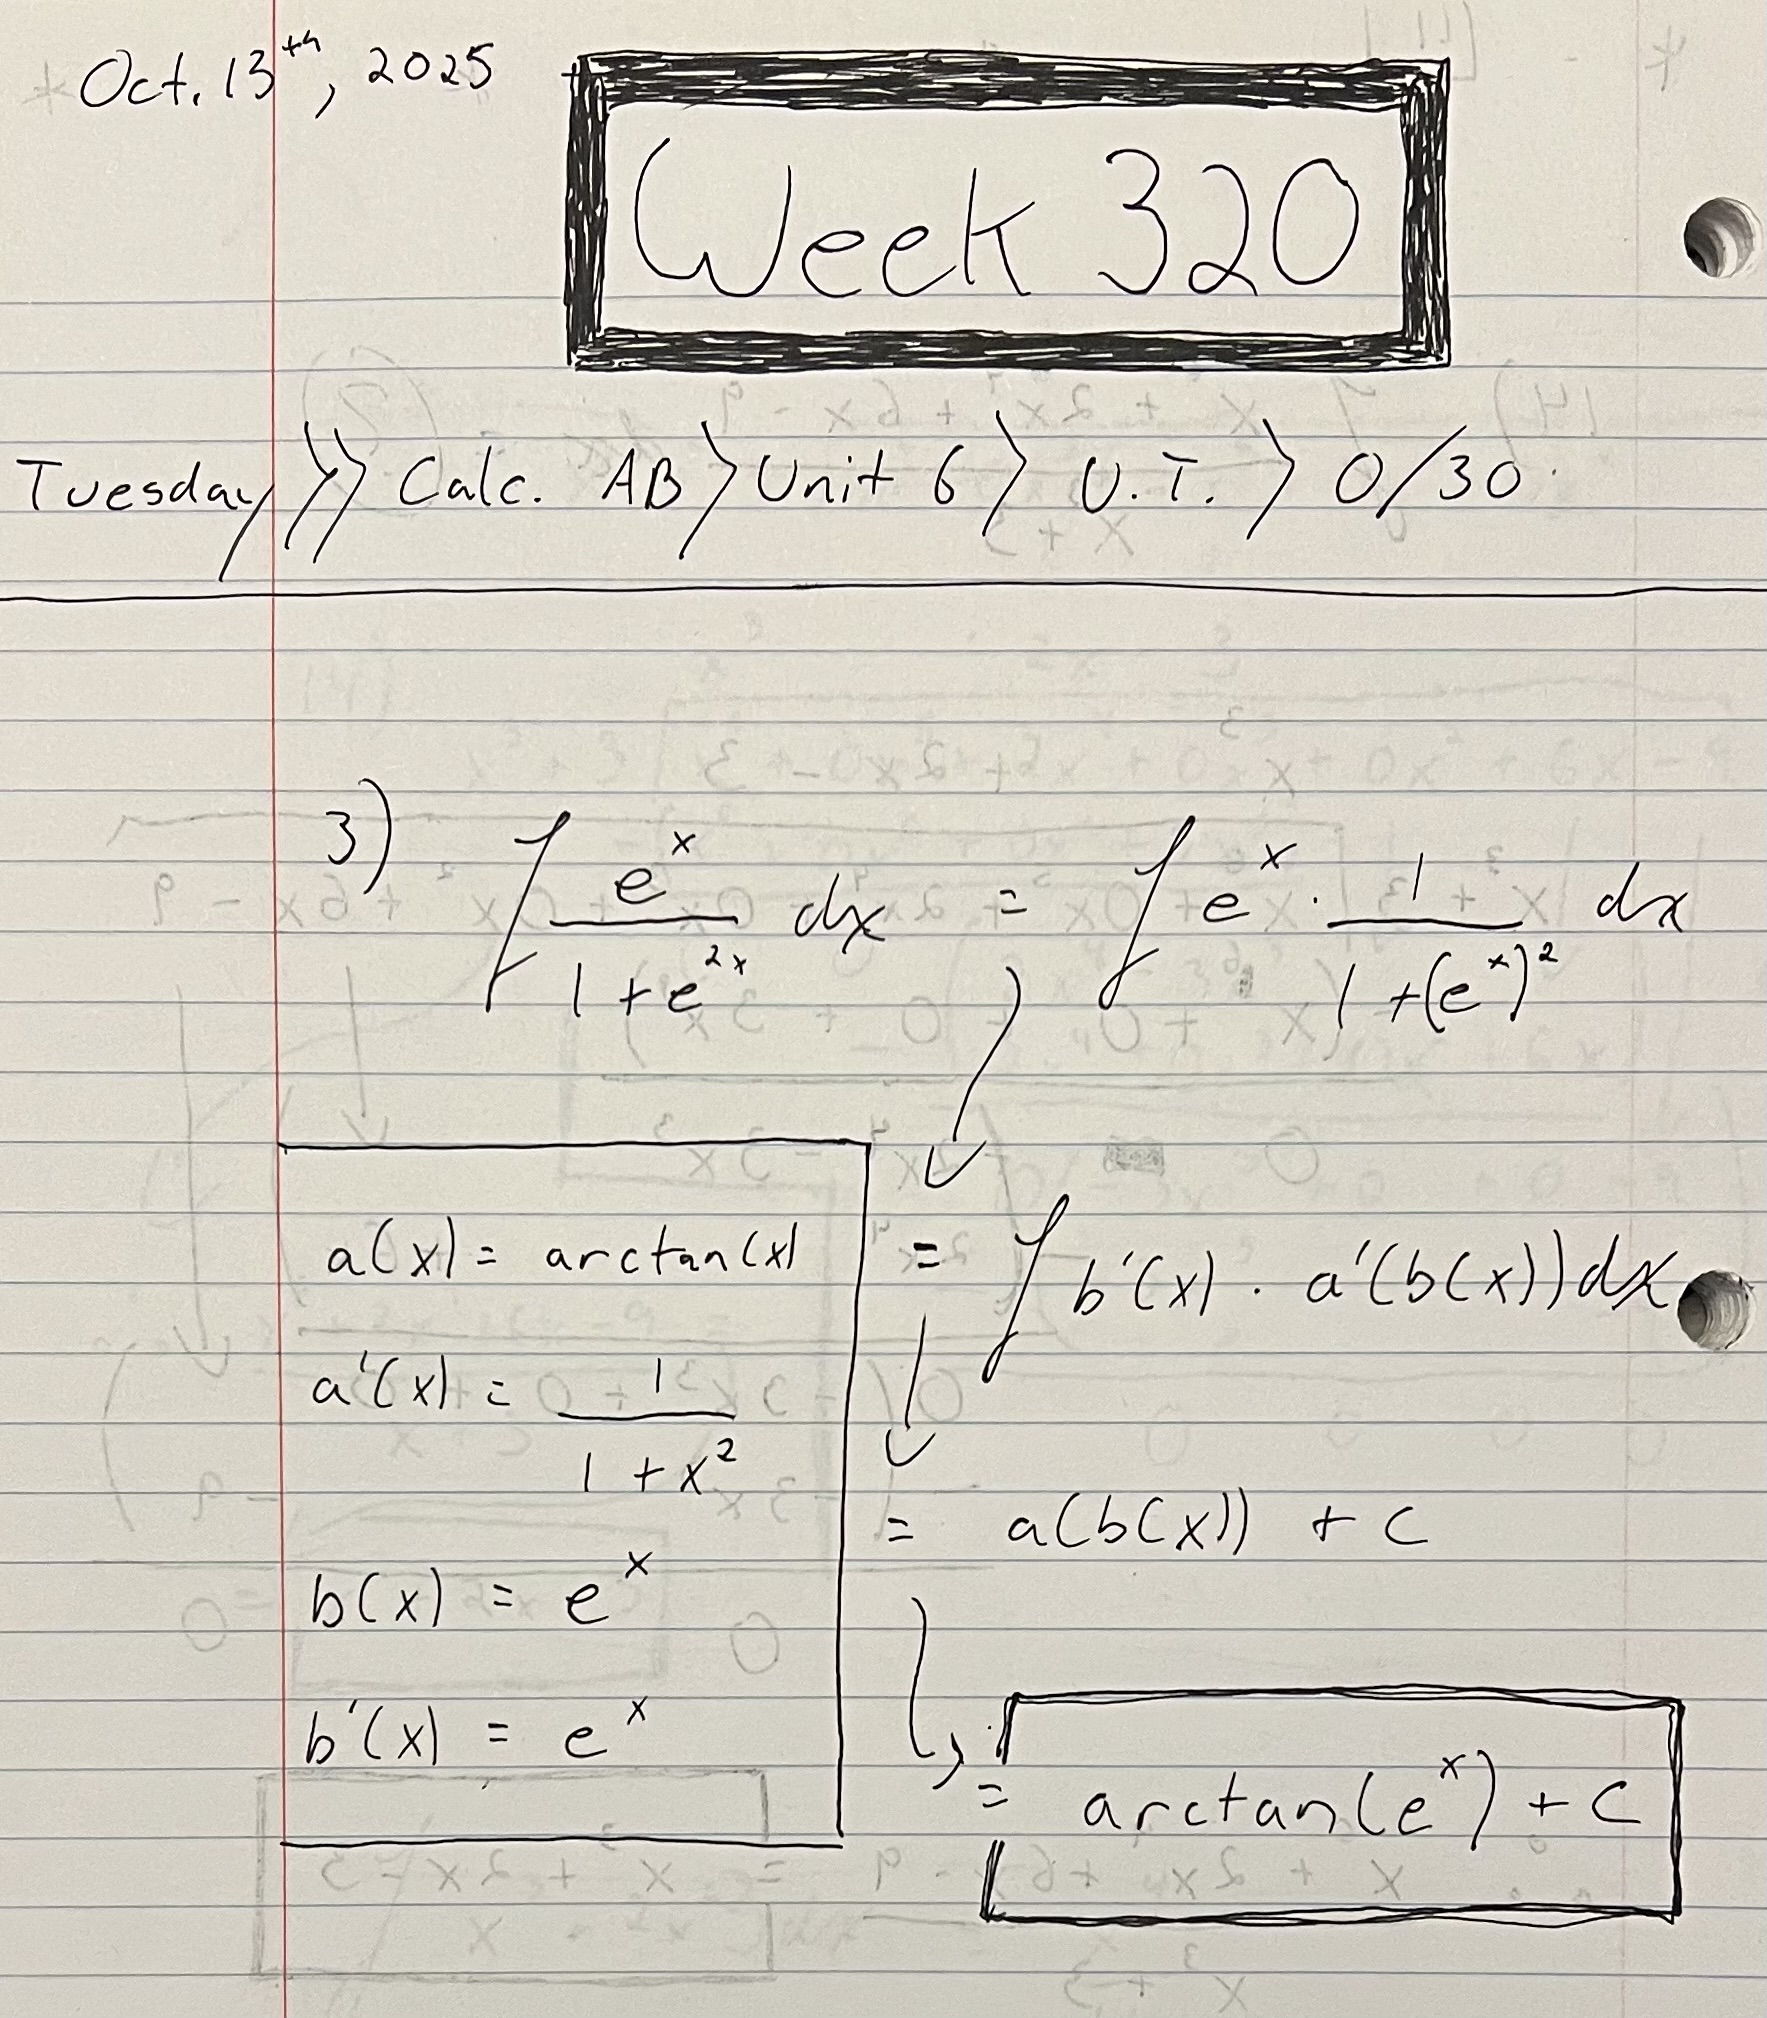 Oct. 13th, 2025
Week 320
Tuesday >>> Calc. AB > Unit 6 > U.T. > 0/30
3) ∫ e^x / (1 + e^(2x)) dx = ∫ e^x · 1 / (1 + (e^x)^2) dx
a(x) = arctan(x)
a'(x) = 1 / (1 + x^2)
b(x) = e^x
b'(x) = e^x
= ∫ b'(x) · a'(b(x)) dx
= a(b(x)) + C
= arctan(e^x) + C